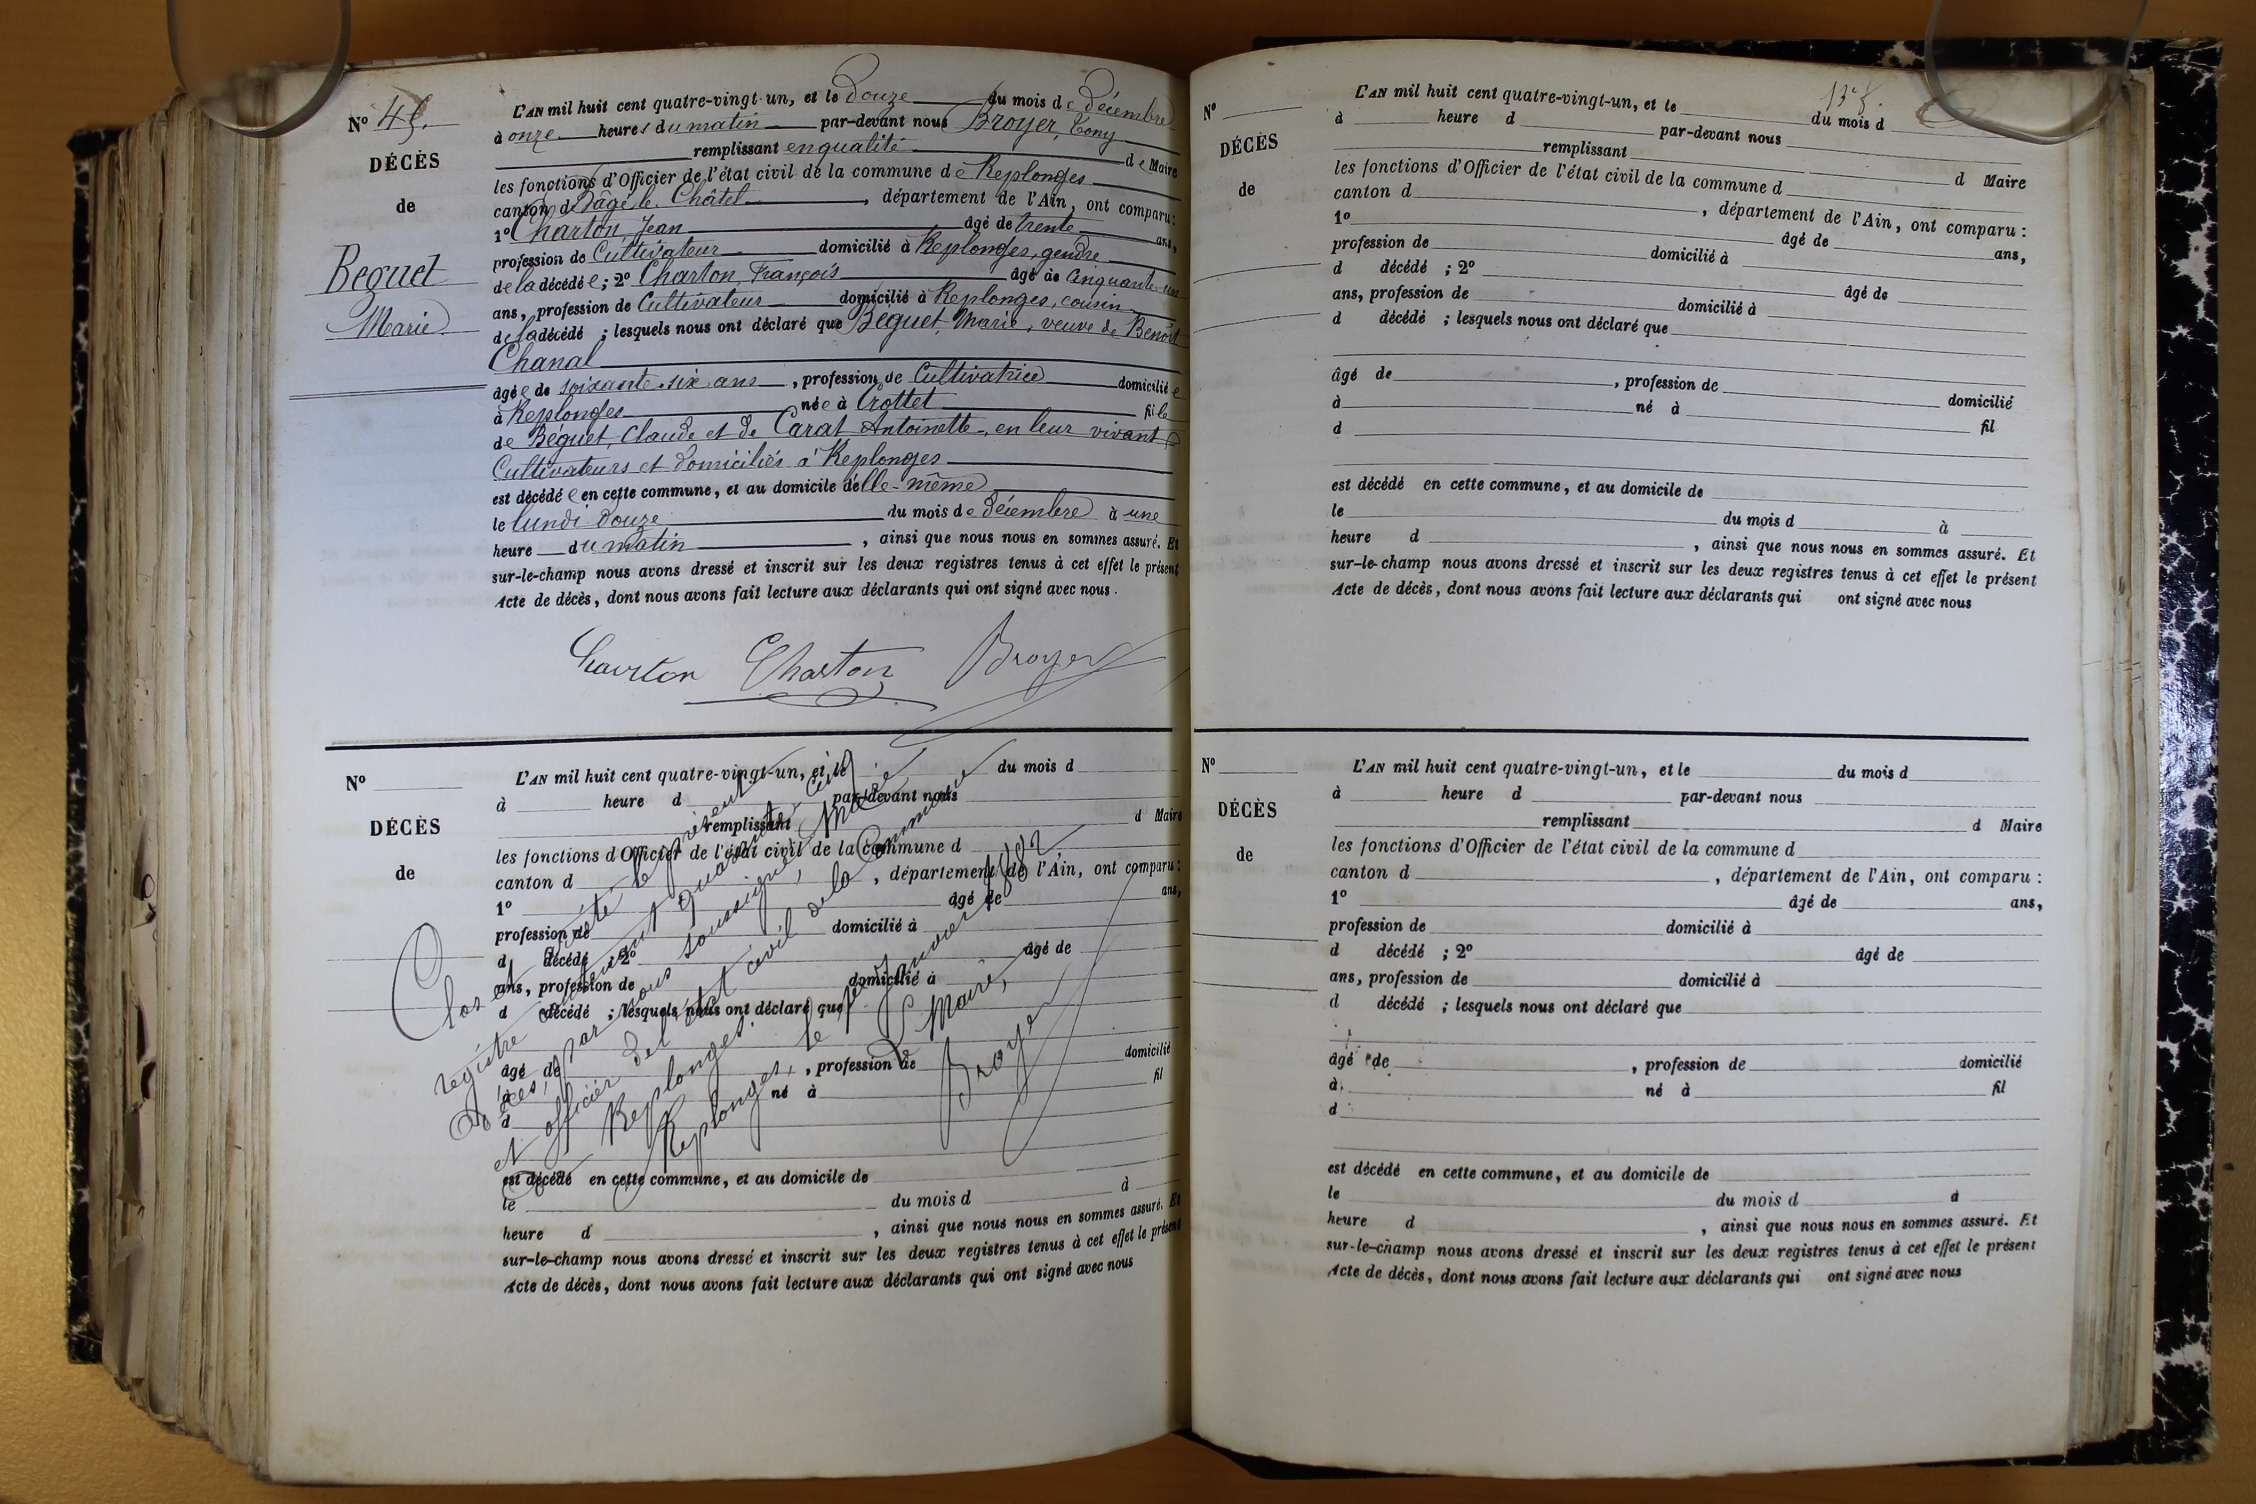 N° 45.
DÉCÈS
de
Beguet
Marie
L'AN mil huit cent quatre-vingt-un, et le Douze du mois de Décembre
à onze heures du matin par-devant nous Broyer, Tony
remplissant en qualité de Maire
les fonctions d'Officier de l'état civil de la commune de Replonges
canton de Bâgé-le-Châtel, département de l'Ain, ont comparu :
1° Charton, Jean âgé de trente ans,
profession de Cultivateur domicilié à Replonges, gendre
de la décédée ; 2° Charton, François âgé de Cinquante-un
ans, profession de Cultivateur domicilié à Replonges, cousin
de la décédé ; lesquels nous ont déclaré que Beguet, Marie, veuve de Benoît
Chanal
âgée de soixante-six ans, profession de Cultivatrice domiciliée
à Replonges née à Crottet fille
de Béguet, Claude et de Carat Antoinette, en leur vivant
Cultivateurs et domiciliés à Replonges
est décédée en cette commune, et au domicile d'elle-même
le lundi douze du mois de décembre à une
heure du matin, ainsi que nous nous en sommes assuré. Et
sur-le-champ nous avons dressé et inscrit sur les deux registres tenus à cet effet le présent
Acte de décès, dont nous avons fait lecture aux déclarants qui ont signé avec nous.
Charton Charton Broyer
N°
DÉCÈS
de
L'AN mil huit cent quatre-vingt-un, et le du mois d
à heure d par-devant nous
remplissant d Maire
les fonctions d'Officier de l'état civil de la commune d
canton d , département de l'Ain, ont comparu :
1° âgé de ans,
profession de domicilié à
d décédé ; 2° âgé de
ans, profession de domicilié à
d décédé ; lesquels nous ont déclaré que
âgé de , profession de domicilié
à né à fil
d
est décédé en cette commune, et au domicile de
le du mois d à
heure d , ainsi que nous nous en sommes assuré. Et
sur-le-champ nous avons dressé et inscrit sur les deux registres tenus à cet effet le présent
Acte de décès, dont nous avons fait lecture aux déclarants qui ont signé avec nous
Clos et arrêté le présent
registre contenant quarante-cinq
décès, par nous soussigné, Maire
et officier de l'état civil de la Commune
de Replonges.
Replonges, le 1er Janvier 1882
Le Maire,
Broyer
N°
DÉCÈS
de
L'AN mil huit cent quatre-vingt-un, et le du mois d
à heure d par-devant nous
remplissant d Maire
les fonctions d'Officier de l'état civil de la commune d
canton d , département de l'Ain, ont comparu :
1° âgé de ans,
profession de domicilié à
d décédé ; 2° âgé de
ans, profession de domicilié à
d décédé ; lesquels nous ont déclaré que
âgé de , profession de domicilié
à né à fil
d
est décédé en cette commune, et au domicile de
le du mois d à
heure d , ainsi que nous nous en sommes assuré. Et
sur-le-champ nous avons dressé et inscrit sur les deux registres tenus à cet effet le présent
Acte de décès, dont nous avons fait lecture aux déclarants qui ont signé avec nous
N°
DÉCÈS
de
L'AN mil huit cent quatre-vingt-un, et le du mois d
à heure d par-devant nous
remplissant d Maire
les fonctions d'Officier de l'état civil de la commune d
canton d , département de l'Ain, ont comparu :
1° âgé de ans,
profession de domicilié à
d décédé ; 2° âgé de
ans, profession de domicilié à
d décédé ; lesquels nous ont déclaré que
âgé de , profession de domicilié
à né à fil
d
est décédé en cette commune, et au domicile de
le du mois d à
heure d , ainsi que nous nous en sommes assuré. Et
sur-le-champ nous avons dressé et inscrit sur les deux registres tenus à cet effet le présent
Acte de décès, dont nous avons fait lecture aux déclarants qui ont signé avec nous